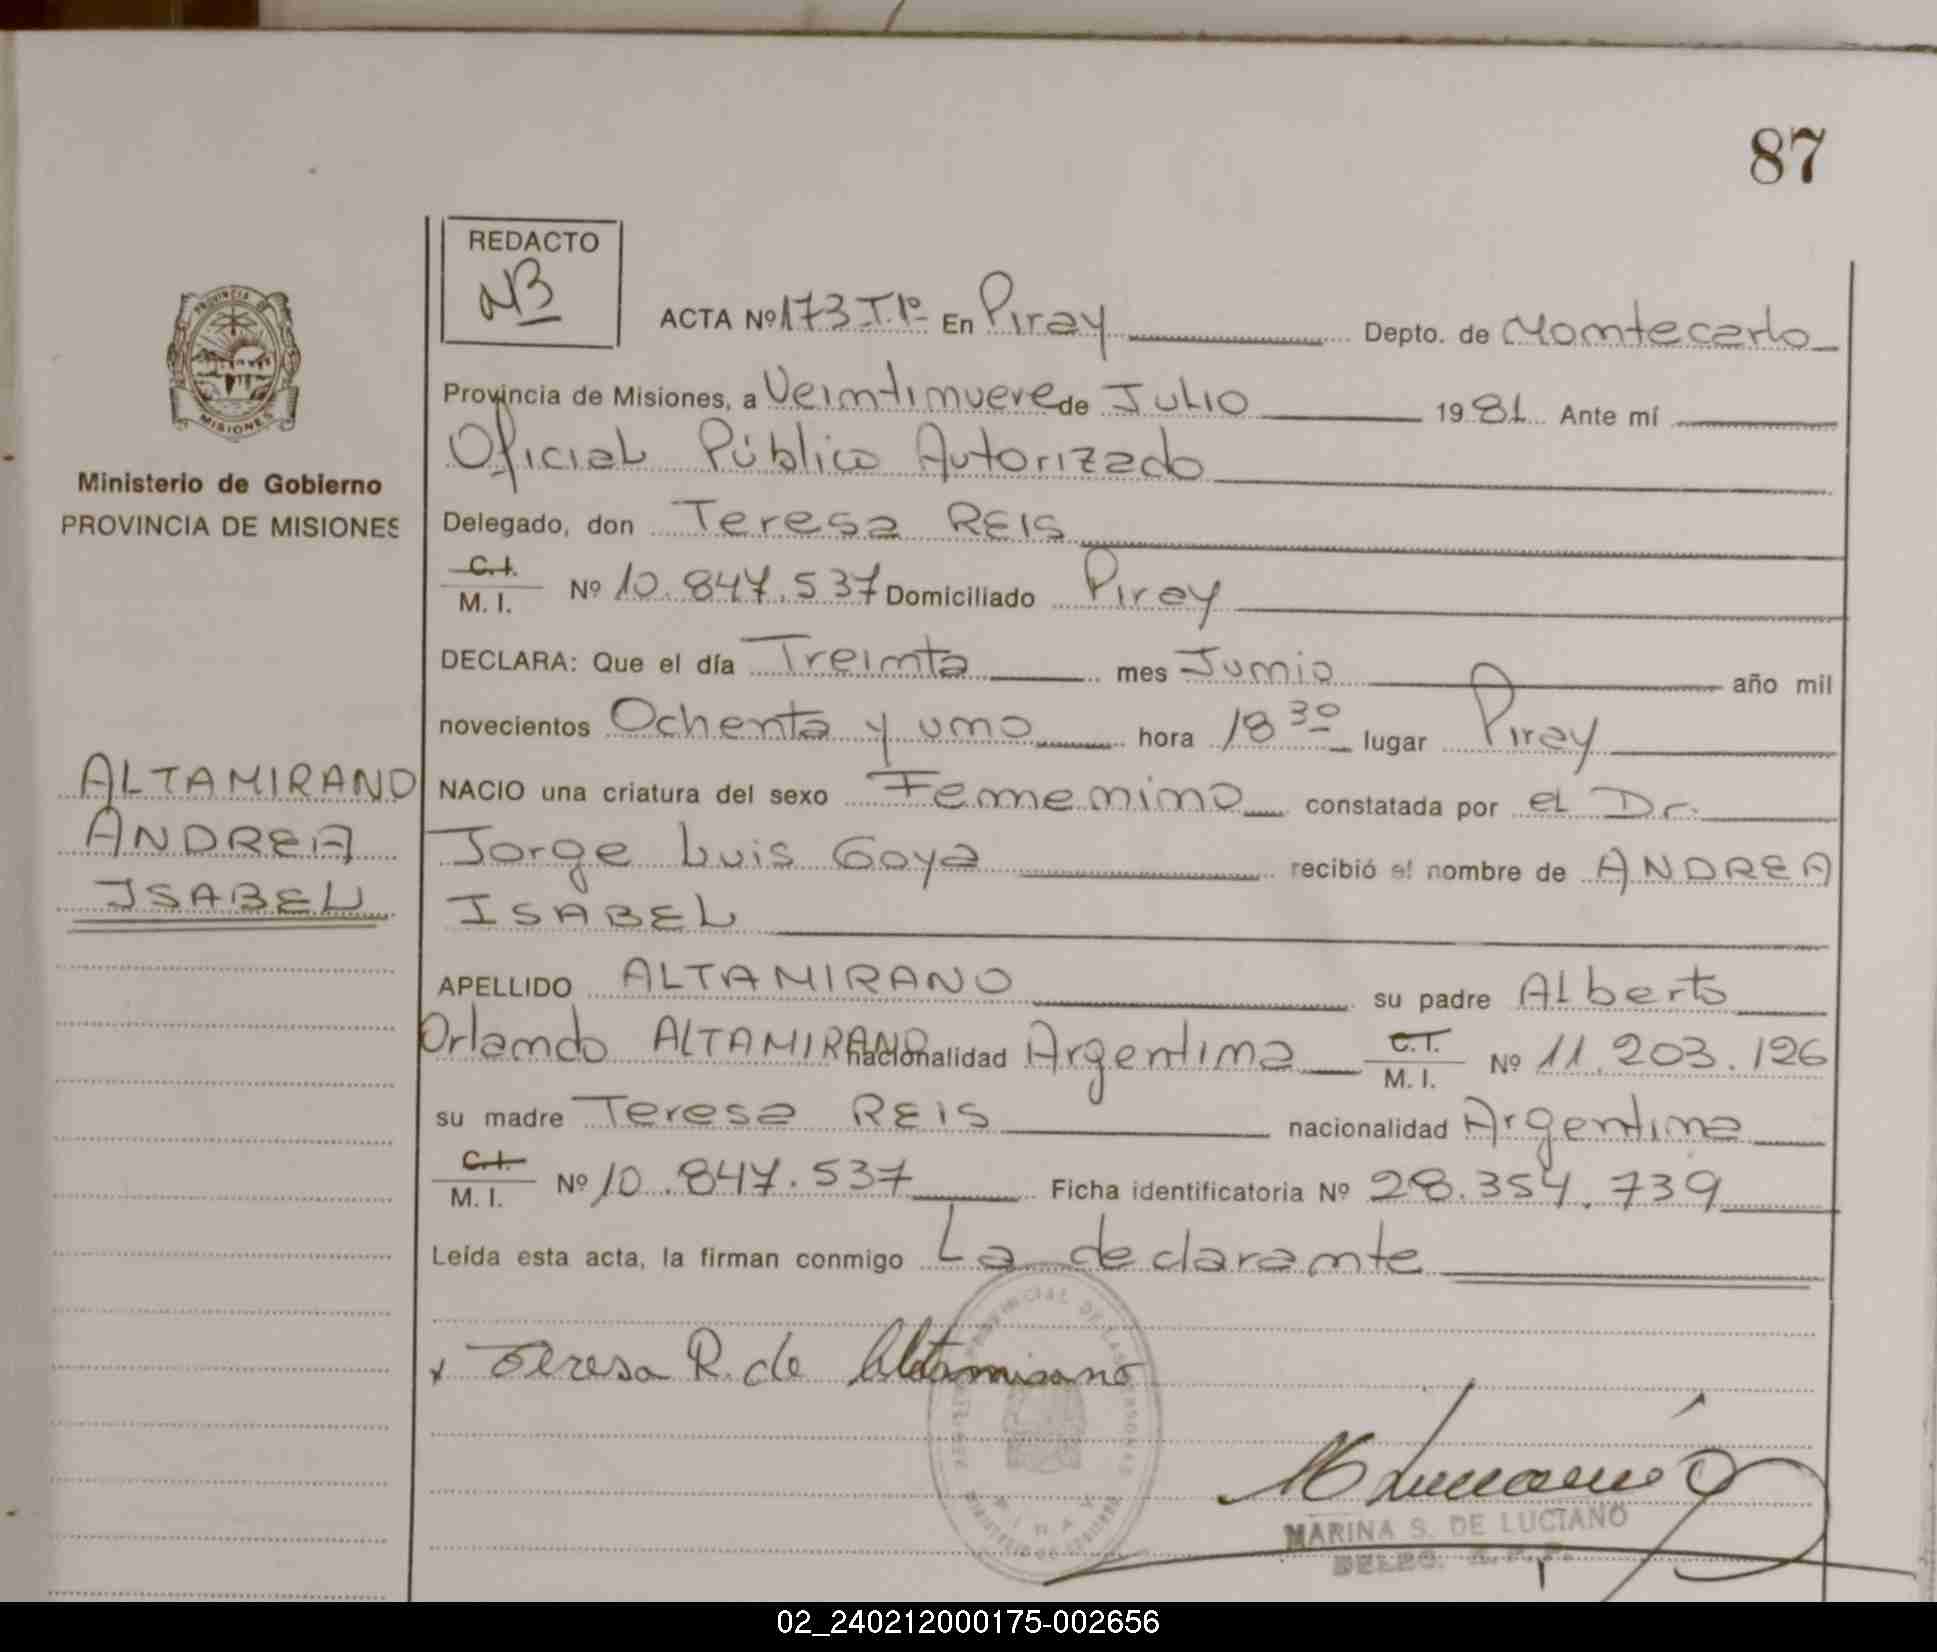 87
REDACTO
NB
ACTA Nº 173 T.1º En Piray Depto. de Montecarlo
Provincia de Misiones, a Veintinueve de Julio 1981 Ante mí
Oficial Público Autorizado
Delegado, don Teresa REIS
C.I. / M. I. Nº 10.847.537 Domiciliado Piray
DECLARA: Que el día Treinta mes Junio año mil
novecientos Ochenta y uno hora 18 30 lugar Piray
NACIO una criatura del sexo Femenino constatada por el Dr.
Jorge Luis Goya recibió el nombre de ANDREA
ISABEL
APELLIDO ALTAMIRANO su padre Alberto
Orlando ALTAMIRANO nacionalidad Argentina C.I. / M. I. Nº 11.203.126
su madre Teresa REIS nacionalidad Argentina
C.I. / M. I. Nº 10.847.537 Ficha identificatoria Nº 28.354.739
Leída esta acta, la firman conmigo La declarante
x Teresa R. de Altamirano
MARINA S. DE LUCIANO
DELEG.
PROVINCIA DE
MISIONES
Ministerio de Gobierno
PROVINCIA DE MISIONES
ALTAMIRANO
ANDREA
ISABEL
02_240212000175-002656